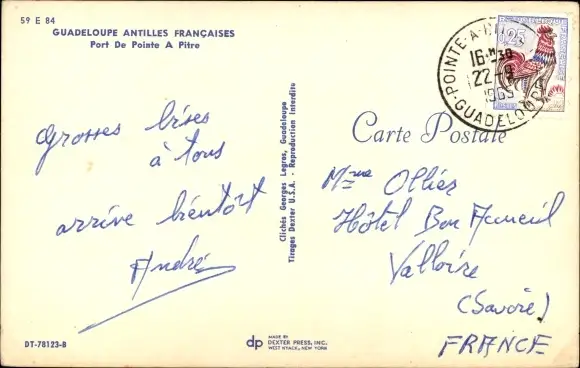 59 E 84
GUADELOUPE ANTILLES FRANÇAISES
Port De Pointe A Pitre
Grosses bises
à tous
arrive bientôt
André
Clichés Georges Legros, Guadeloupe
Tirages Dexter U.S.A. - Reproduction Interdite
0,25
POINTE-A-PITRE
16 H 30
22-9
1965
GUADELOUPE
Carte Postale
Mme Ollier
Hôtel Bon Accueil
Valloire
(Savoie)
FRANCE
DT-78123-B
dp
MADE BY
DEXTER PRESS, INC.
WEST NYACK, NEW YORK